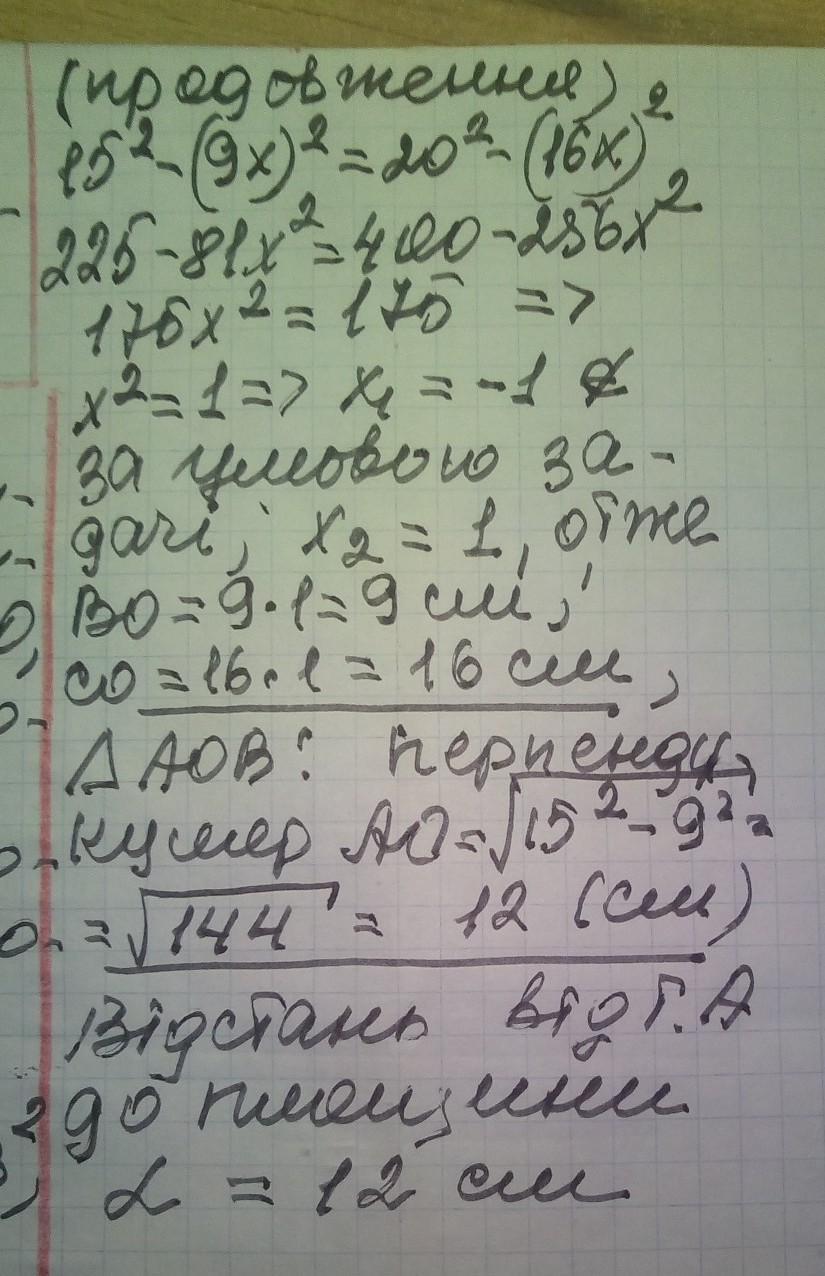 (продовження)
15² - (9x)² = 20² - (16x)²
225 - 81x² = 400 - 256x²
175x² = 175 =>
x² = 1 => x₁ = -1 ∉
за умовою за-
дачі; x₂ = 1, отже
BO = 9·1 = 9 см;
CO = 16·1 = 16 см,
ΔAOB: перпенди-
куляр AO = √15² - 9² =
= √144 = 12 (см)
Відстань від т. A
до площини
α = 12 см